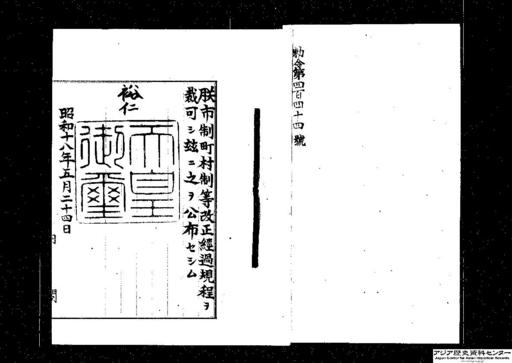 勅令第四百四十四號
朕市制町村制等改正經過規程ヲ
裁可シ玆ニ之ヲ公布セシム
裕仁
天皇
御璽
昭和十八年五月二十四日
アジア歴史資料センター
Japan Center for Asian Historical Records